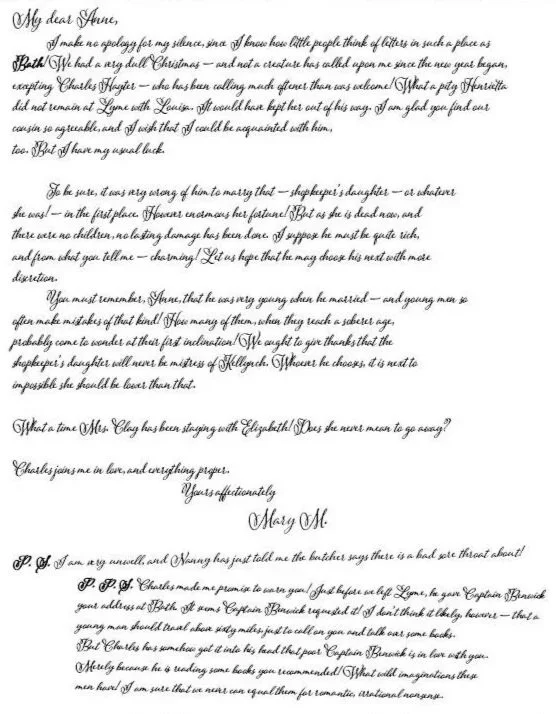 My dear Anne,
I make no apology for my silence, since I know how little people think of letters in such a place as
Bath! We had a very dull Christmas — and not a creature has called upon me since the new year began,
excepting Charles Hayter — who has been calling much oftener than was welcome! What a pity Henrietta
did not remain at Lyme with Louisa. It would have kept her out of his way. I am glad you find our
cousin so agreeable, and I wish that I could be acquainted with him,
too. But I have my usual luck.
To be sure, it was very wrong of him to marry that — shopkeeper's daughter — or whatever
she was! — in the first place. However enormous her fortune! But as she is dead now, and
there were no children, no lasting damage has been done. I suppose he must be quite rich,
and from what you tell me — charming! Let us hope that he may choose his next with more
discretion.
You must remember, Anne, that he was very young when he married — and young men so
often make mistakes of that kind! How many of them, when they reach a soberer age,
probably come to wonder at their first inclination! We ought to give thanks that the
shopkeeper's daughter will never be mistress of Kellynch. Whoever he chooses, it is next to
impossible she should be lower than that.
What a time Mrs. Clay has been staying with Elizabeth! Does she never mean to go away?
Charles joins me in love, and everything proper.
Yours affectionately
Mary M.
P. S. I am very unwell, and Nanny has just told me the butcher says there is a bad sore throat about!
P. P. S. Charles made me promise to warn you! Just before we left Lyme, he gave Captain Benwick
your address at Bath. It seems Captain Benwick requested it! I don't think it likely, however — that a
young man should travel above sixty miles just to call on you and talk over some books.
But Charles has somehow got it into his head that poor Captain Benwick is in love with you.
Merely because he is reading some books you recommended! What wild imaginations these
men have! I am sure that we never can equal them for romantic, irrational nonsense.